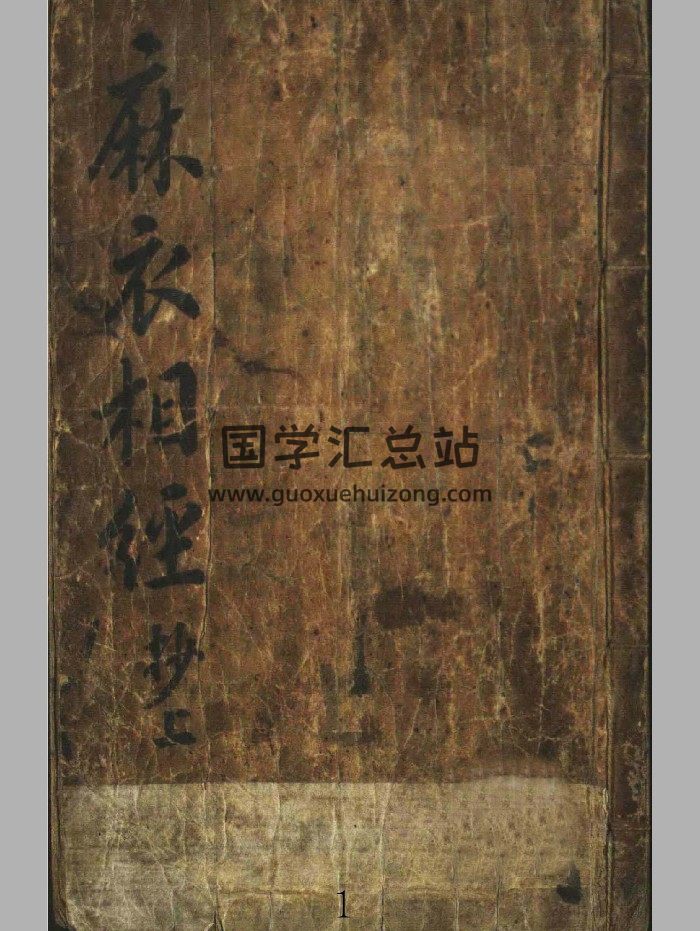 麻衣相經抄上
国学汇总站
www.guoxuehuizong.com
1